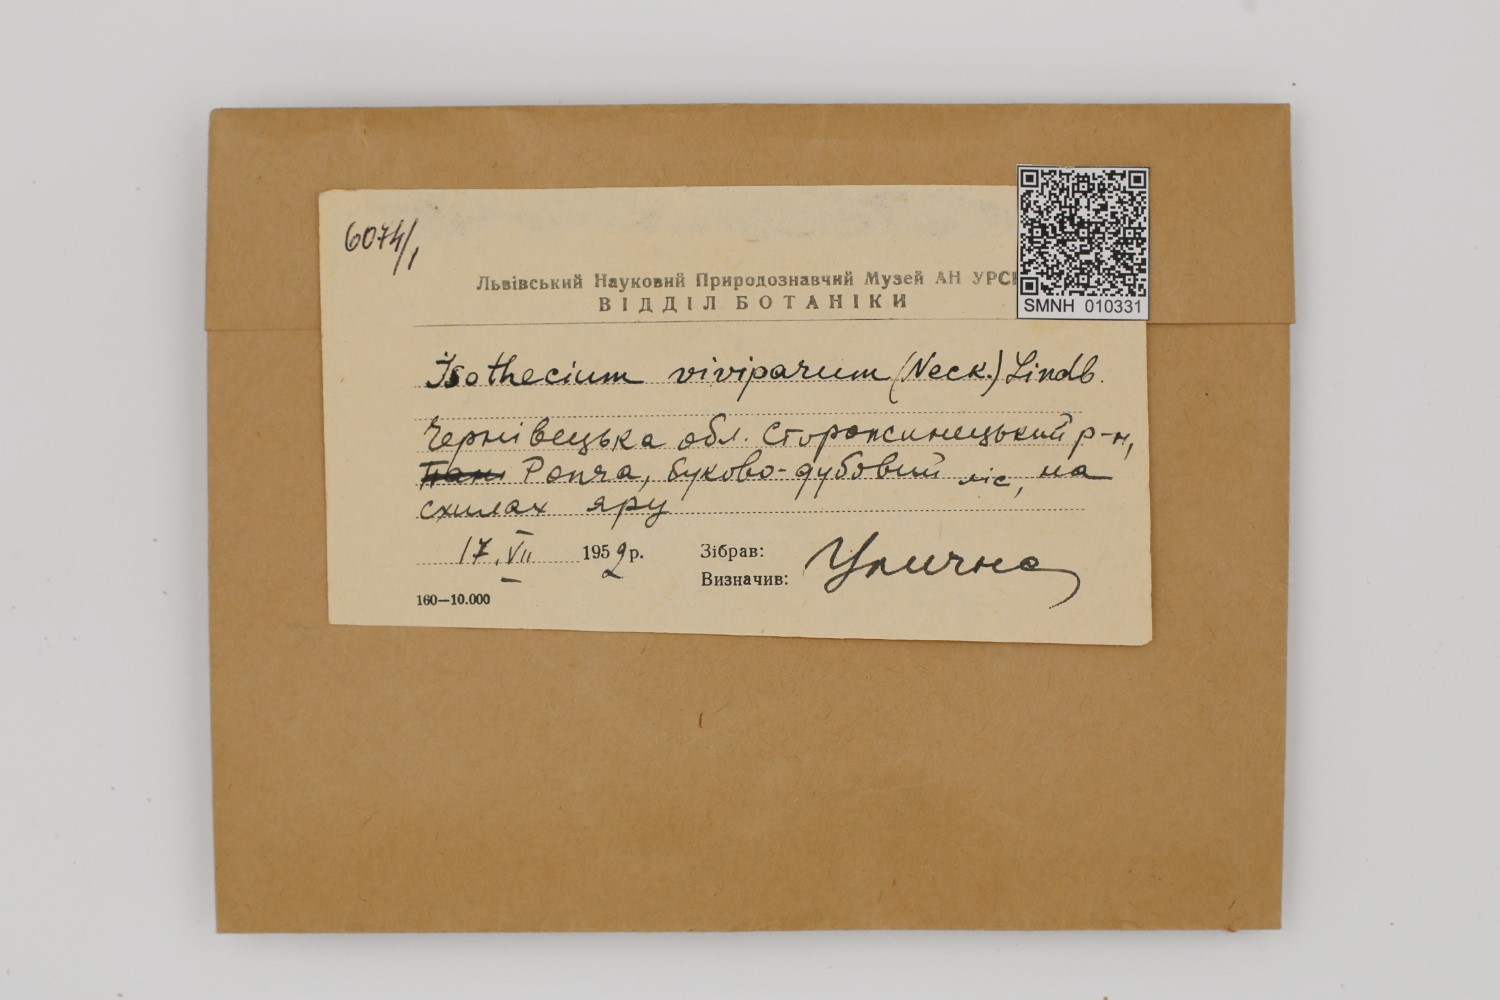 6074/1
Львівський Науковий Природознавчий Музей АН УРС
ВІДДІЛ БОТАНІКИ
SMNH 010331
Isothecium viviparum (Neck.) Lindb.
Чернівецька обл. Сторожинецький р-н,
Ропча, буково-дубовий ліс, на
схилах яру
17.VII 1952р.
Зібрав: Улична
Визначив:
160—10.000